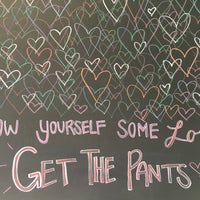 OW YOURSELF SOME Lo
GET THE PANTS